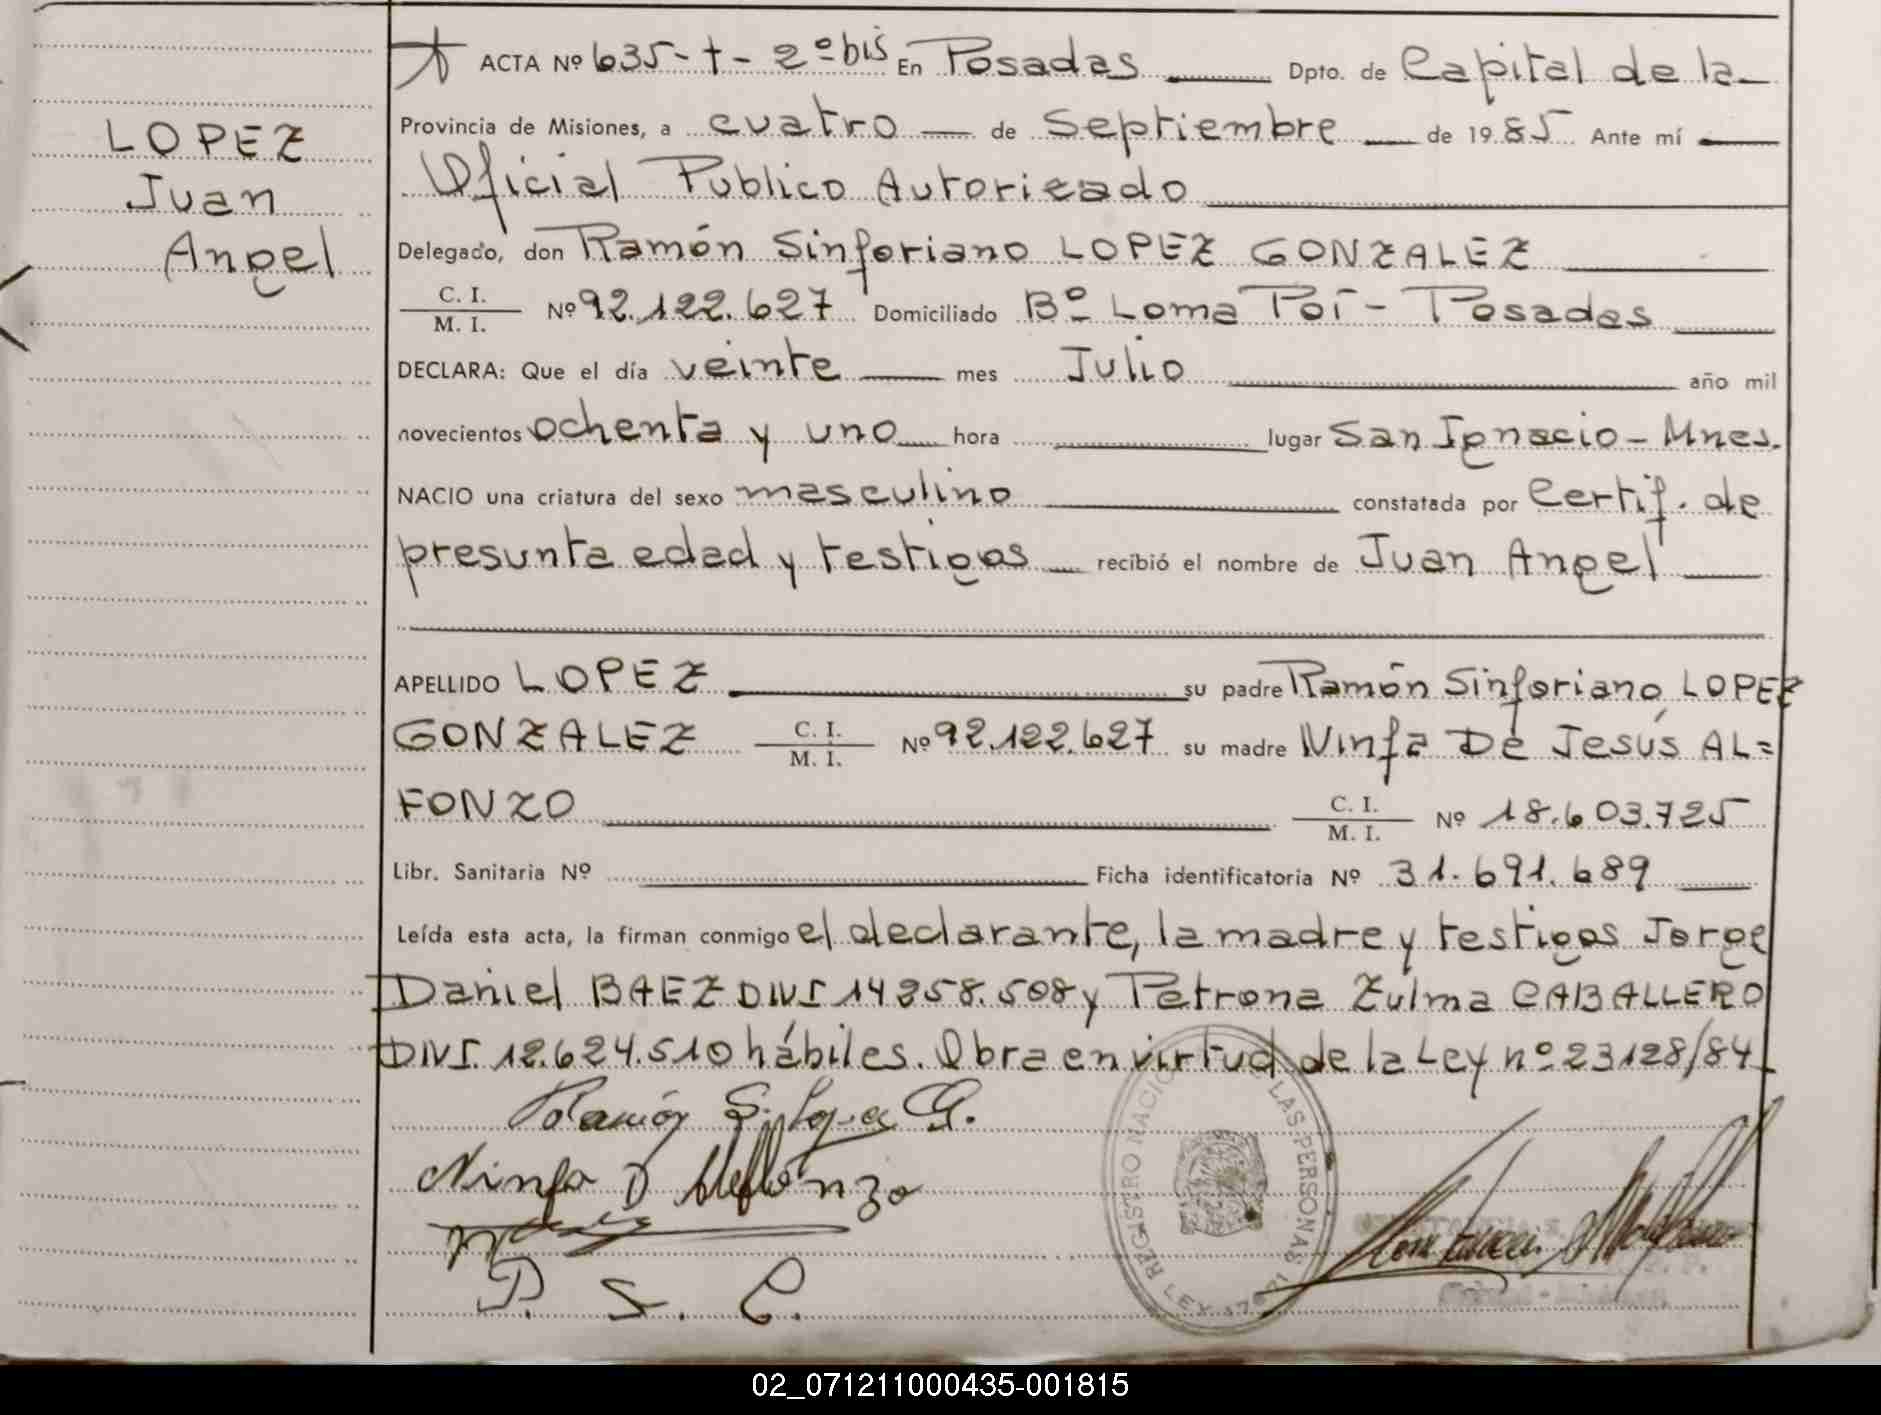 LOPEZ
Juan
Angel
ACTA Nº 635-t-2º bis En Posadas Dpto. de Capital de la
Provincia de Misiones, a cuatro de Septiembre de 1985 Ante mí
Oficial Publico Autorizado
Delegado, don Ramón Sinforiano LOPEZ GONZALEZ
C. I.
M. I. Nº 92.122.627 Domiciliado Bº Loma Poí - Posadas
DECLARA: Que el día veinte mes Julio año mil
novecientos ochenta y uno hora lugar San Ignacio - Mnes.
NACIO una criatura del sexo masculino constatada por Certif. de
presunta edad y testigos recibió el nombre de Juan Angel
APELLIDO LOPEZ su padre Ramón Sinforiano LOPEZ
GONZALEZ C. I. M. I. Nº 92.122.627 su madre Ninfa De Jesús AL=
FONZO C. I. M. I. Nº 18.603.725
Libr. Sanitaria Nº Ficha identificatoria Nº 31.691.689
Leída esta acta, la firman conmigo el declarante, la madre y testigos Jorge
Daniel BAEZ DNI 14 258.508 y Petrona Zulma CABALLERO
DNI. 12.624.510 hábiles. Obra en virtud de la Ley nº 23128/84
Ramón S. Lopez G.
Ninfa D Alfonzo
P. S. C.
REGISTRO NACIO LAS PERSONAS
LEY
02_071211000435-001815